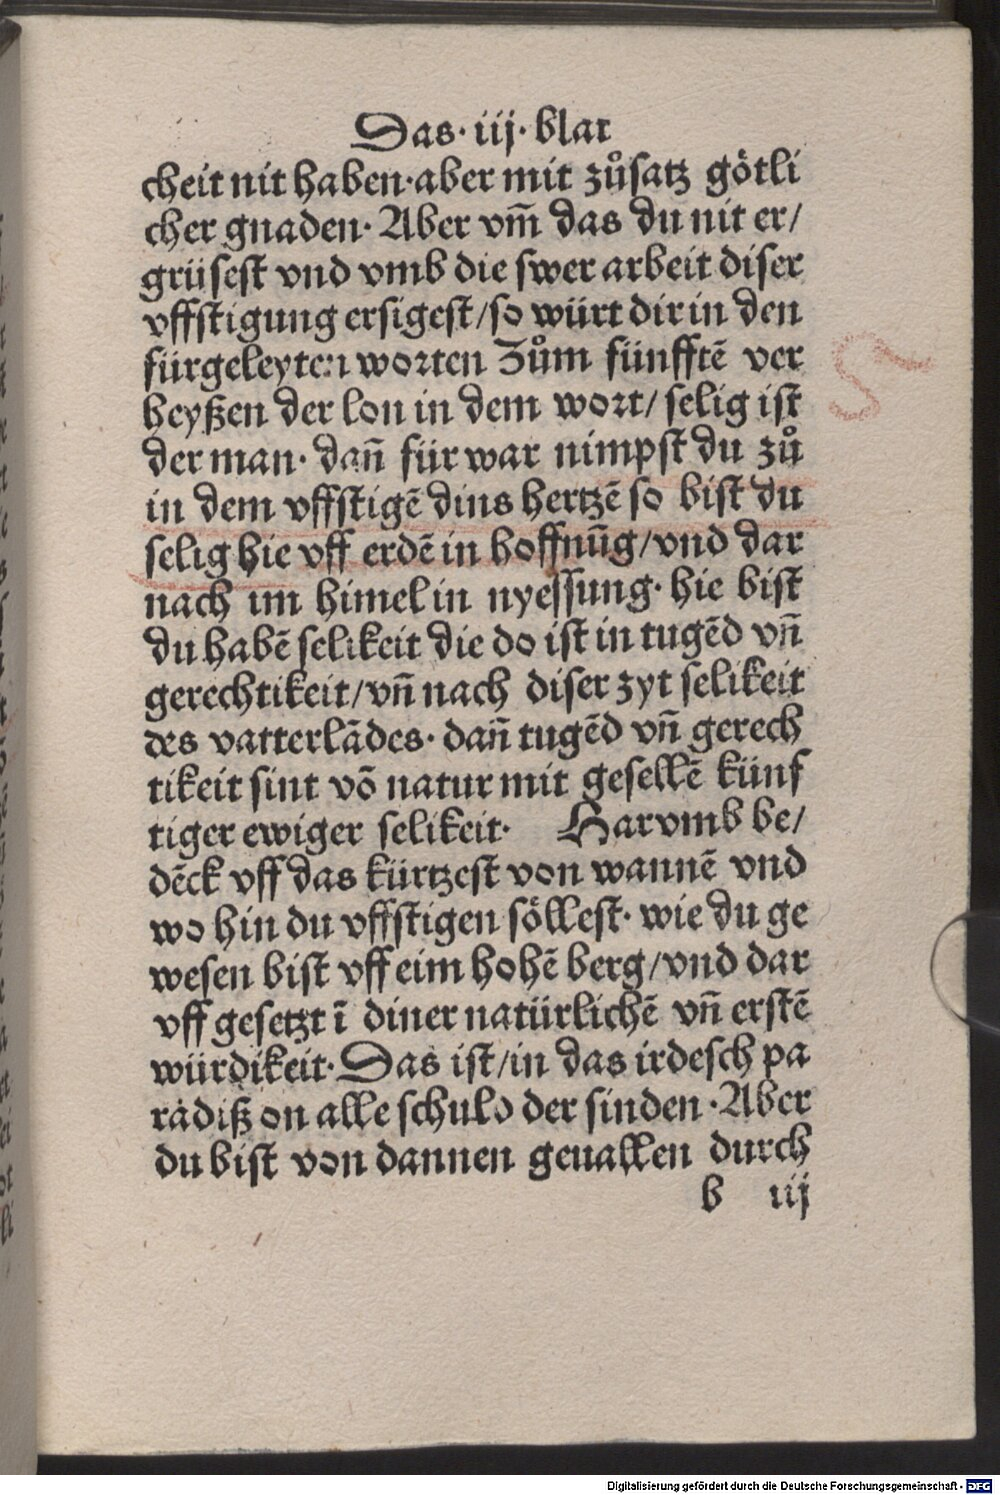 Das· iij· blat
cheit nit haben·aber mit zůsatz götli
cher gnaden· Aber vm̄ das du nit er/
grüsest vnd vmb die swer arbeit diser
vffstigung ersigest/so würt dir in den
fürgeleyten worten Zům fünfftē ver
heyßen der lon in dem wort/ selig ist
der man· dan̄ für war nimpst du zů
in dem vffstigē dins hertzē so bist du
selig hie vff erdē in hoffnūg/vnd dar
nach im himel in nyessung· hie bist
du habē selikeit die do ist in tugēd vn̄
gerechtikeit/vn̄ nach diser zyt selikeit
des vatterlādes· dan̄ tugēd vn̄ gerech
tikeit sint vō natur mit gesellē künf
tiger ewiger selikeit· Harvmb be/
dēck vff das kürtzest von wannē vnd
wo hin du vffstigen söllest· wie du ge
wesen bist vff eim hohē berg/vnd dar
vff gesetzt ī diner natürlichē vn̄ erstē
würdikeit· Das ist/in das irdesch pa
radiß on alle schuld der sinden ·Aber
du bist von dannen geuallen durch
b iij
Digitalisierung gefördert durch die Deutsche Forschungsgemeinschaft - DFG